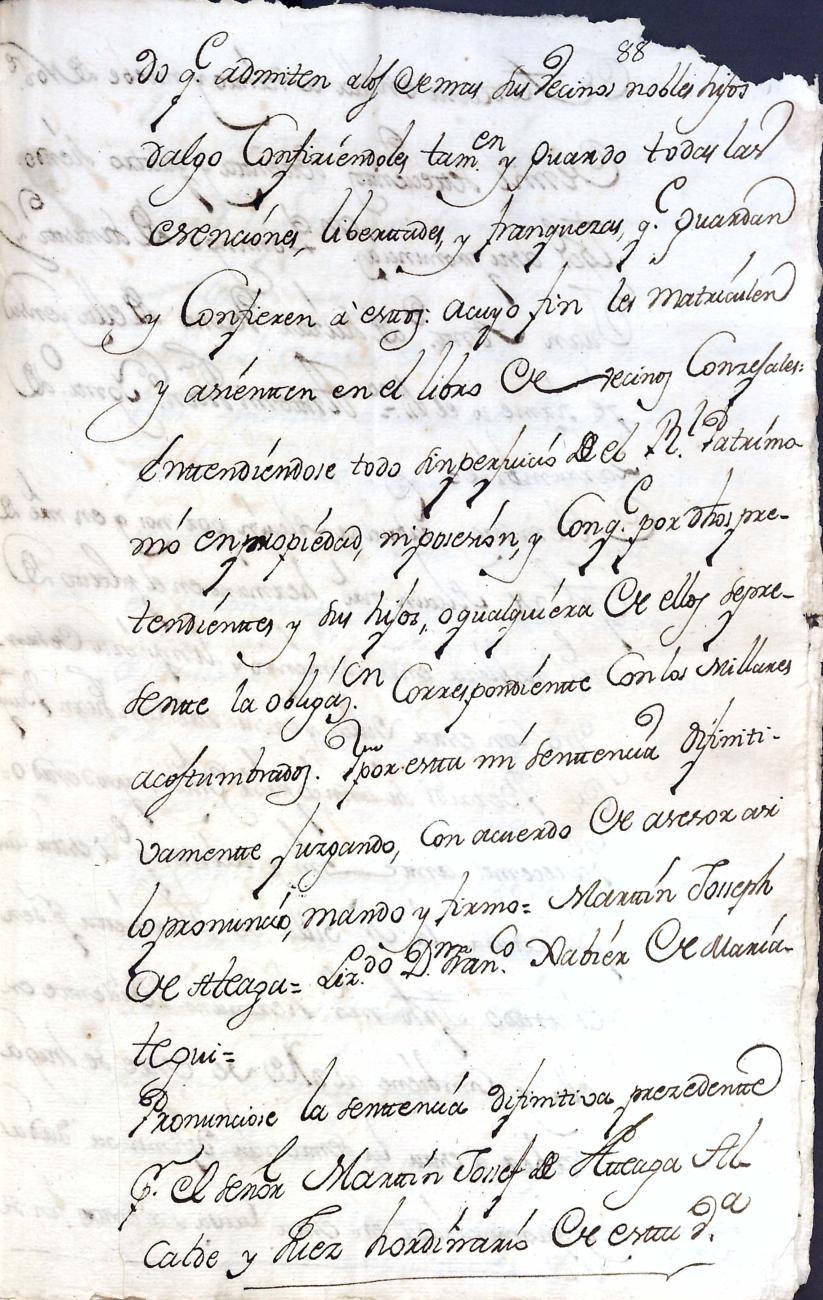 88
do q.e admiten alos demas sus vecinos nobles hijos
dalgo Confiriendoles tam.en y Guardo todas las
esenciónes, libertades, y franquezas, q.e Guardan
y Confieren à esttos: acuyo fin les Matriculen
y asientten en el libro de vecinos Conzejales:
Enttendiendose todo sinperjuicio de el R.l Patrimo
nió enpropiedad, niposesión, y Conq.e por dhos pre-
tendienttes y sus hijos, oqualquiera de ellos sepre-
sentte la obligaz.on Correspondientte Con los Millares
acosttumbrados. Y por estta mi senttencia difiniti-
vamentte juzgando, con acuerdo de asesor asi
lo pronunció, mando y firmo= Martín Joseph
de Atteaga= Liz.do D.n Fran.co Xabiér de María-
tegui=
Pronunciose la senttencia difinitiva prezedentte
p.r el señor Martín Josef de Atteaga Al-
calde y Juez hordinario de estta v.a